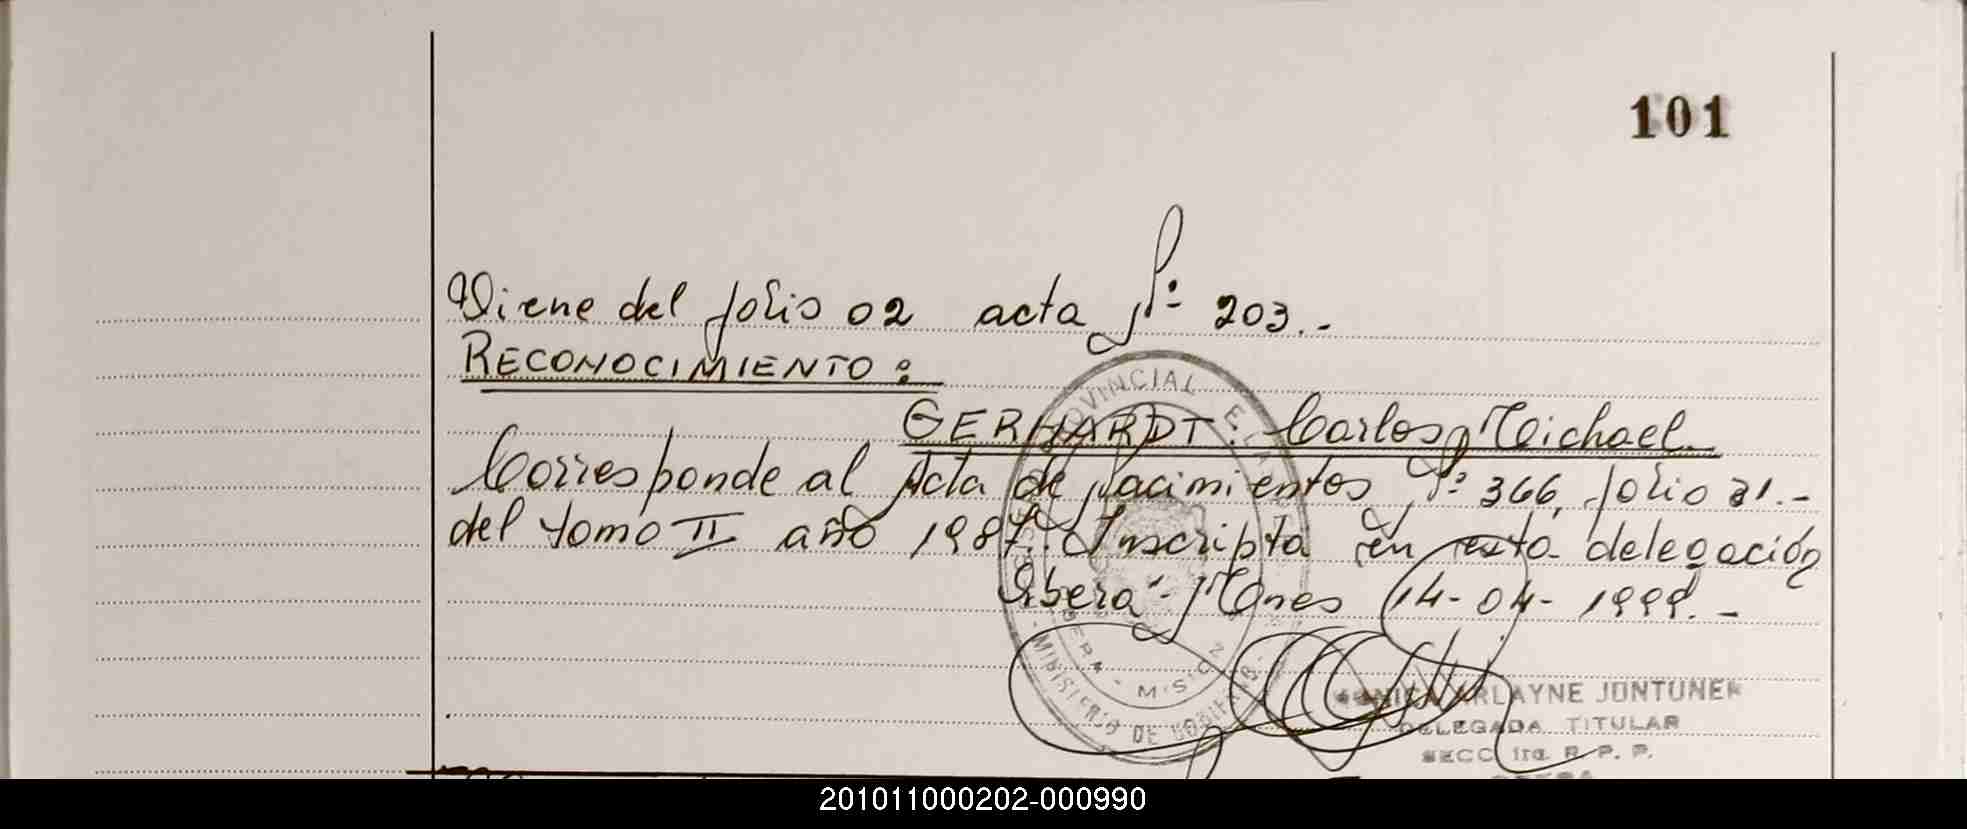 101
Viene del folio 02 acta Nº 203.-
RECONOCIMIENTO:
GERHARDT. Carlos Michael
Corresponde al Acta de Nacimientos Nº 366, folio 31.-
del tomo II año 1987. Inscripta en esta delegación
Oberá- Mnes 14-04-1999.-
PROVINCIAL
MINISTERIO DE GOBIERNO
ARLAYNE JONTUNEN
DELEGADA TITULAR
SECC. 1ra. R. P. P.
OBERA
201011000202-000990